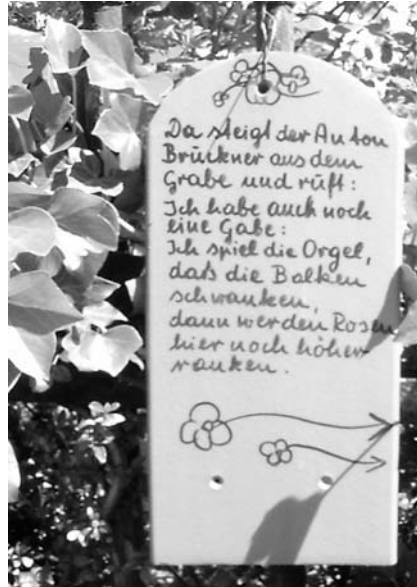 Da steigt der Anton
Brückner aus dem
Grabe und rüft:
Ich habe auch noch
eine Gabe:
Ich spiel die Orgel,
daß die Balken
schwanken,
dann werden Rosen
hier noch höher
ranken.